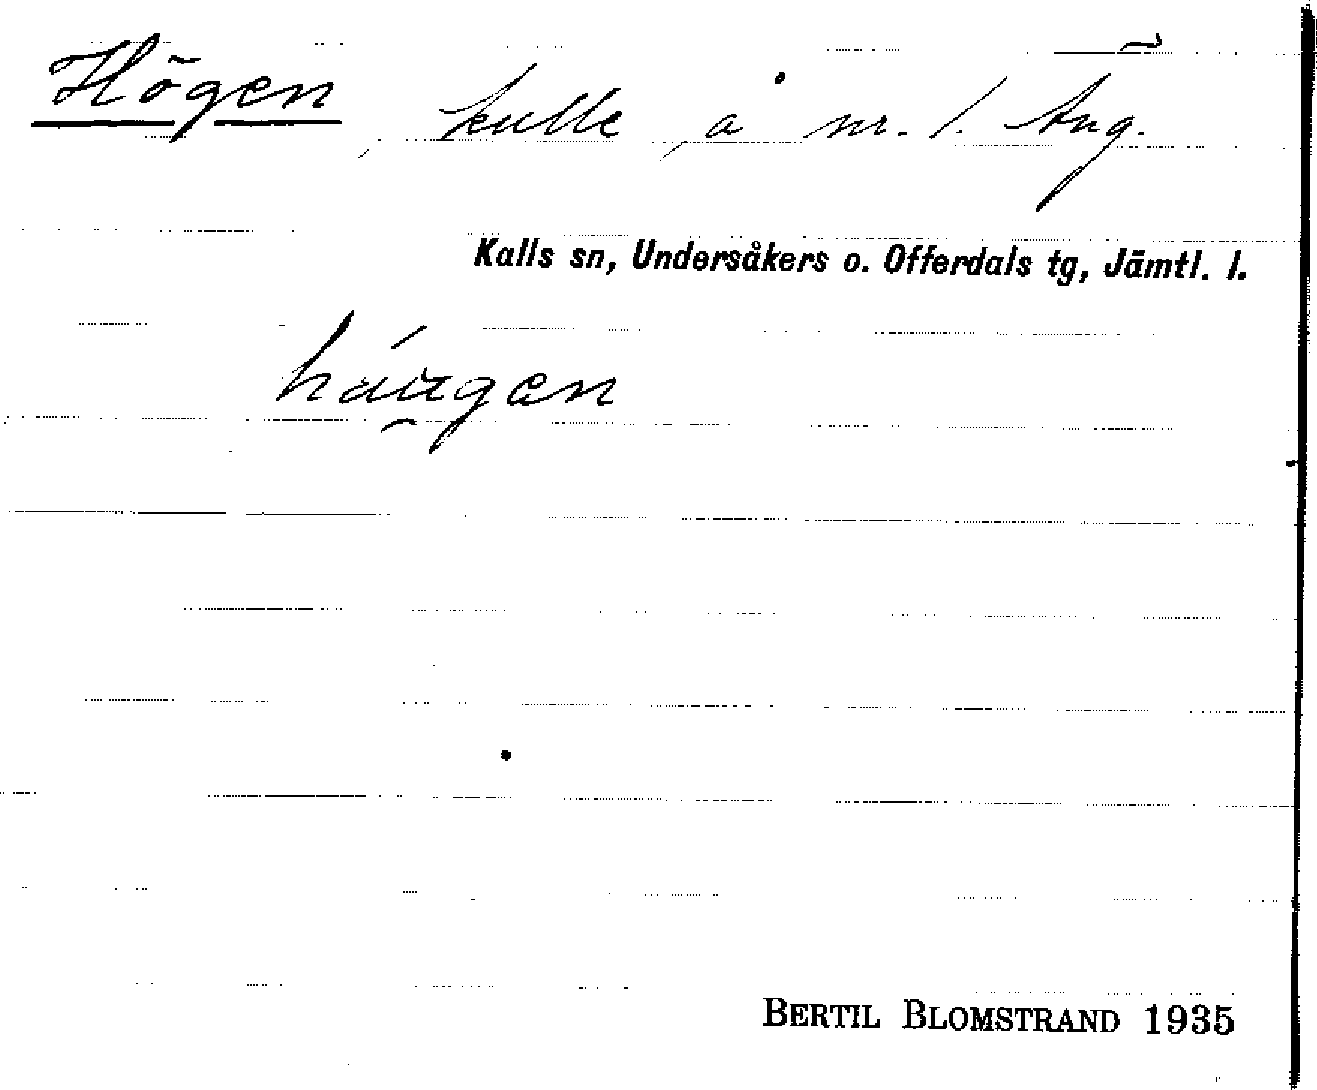 Högen, kulle, å nr. 1. Äng.
Kalls sn, Undersåkers o. Offerdals tg, Jämtl. l.
háu̯gen
BERTIL BLOMSTRAND 1935